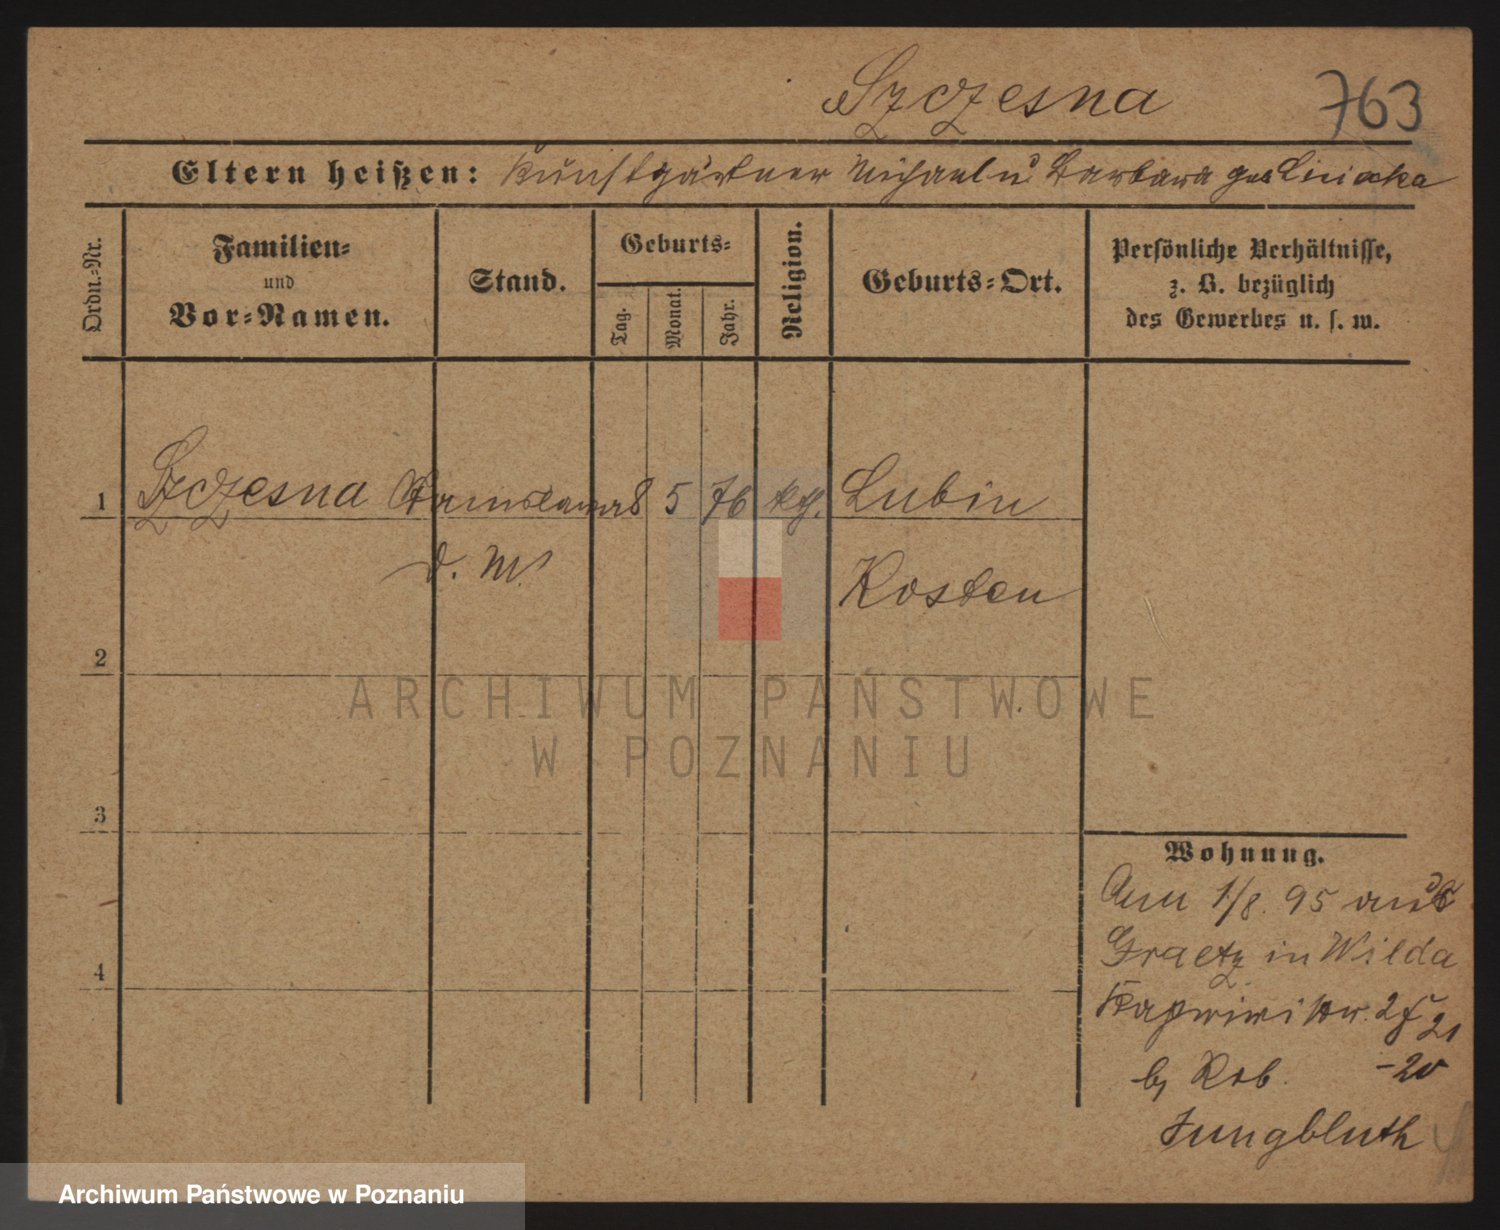 Szczesna 763
Eltern heißen: Kunstgärtner Michael u Barbara geb
Ordn.-Nr.
Familien-
und
Vor-Namen.
Stand.
Geburts-
Tag.
Monat.
Jahr.
Religion.
Geburts-Ort.
Persönliche Verhältnisse,
z. B. bezüglich
des Gewerbes u. s. w.
1 Szczesna Stanislawa 8 5 76 kth. Lubin
d. M. Kosten
2
ARCHIWUM PAŃSTWOWE
W POZNANIU
3
Wohnung.
Am 1/8. 95 aus
Graetz in Wilda
4
21
by Rob. -20
Jungbluth
Archiwum Państwowe w Poznaniu